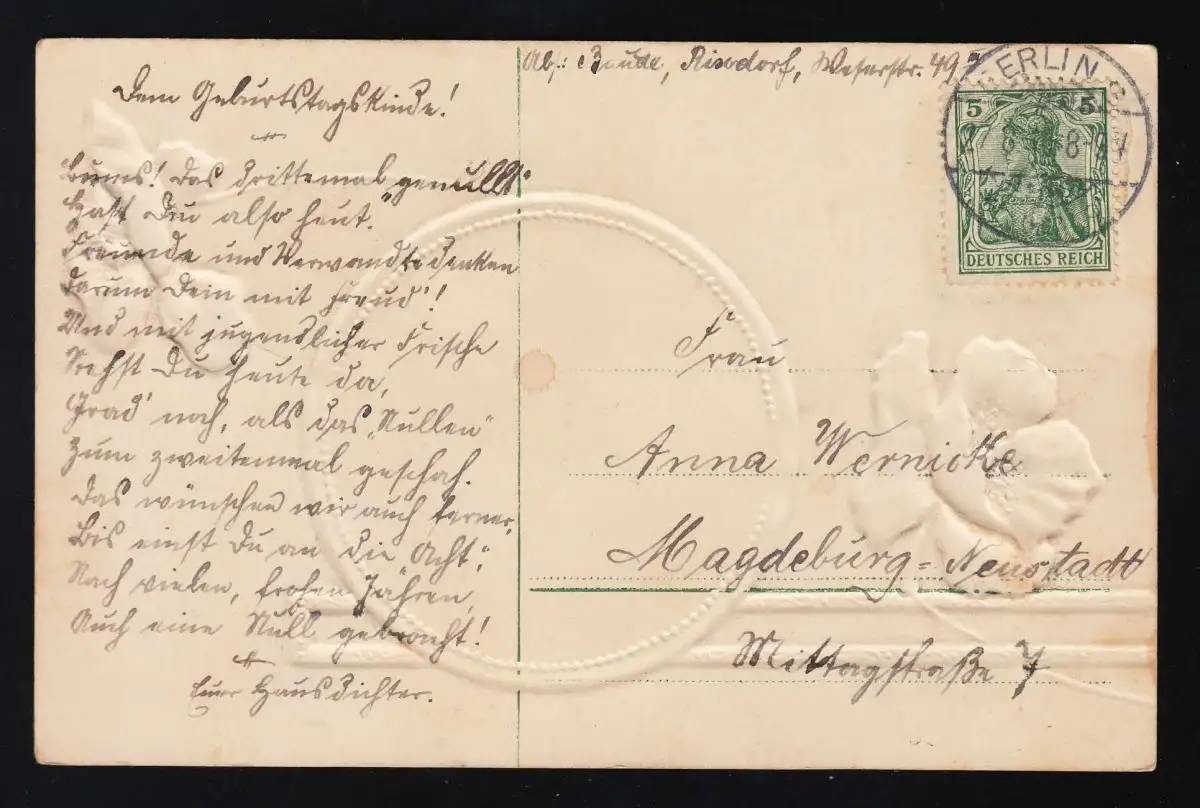 Dem Geburtstagskinde!
Bums! Das drittemal „genullt“
Hast Du also heut.
Freunde und Verwandte denken
Darum Dein mit Freud'!
Und mit jugendlicher Frische
Stehst Du heute da,
Grad' noch, als das „Nullen“
Zum zweitenmal geschah.
Das wünschen wir auch ferner,
Bis einst Du an die „Acht“,
Nach vielen, frohen Jahren,
Auch eine Null gebracht!
Euer Hausdichter.
Abs.: Baude, Rixdorf, Weserstr. 49
BERLIN
5 5
8-9
DEUTSCHES REICH
Frau
Anna Wernicke
Magdeburg-Neustadt
Mittagstraße 7